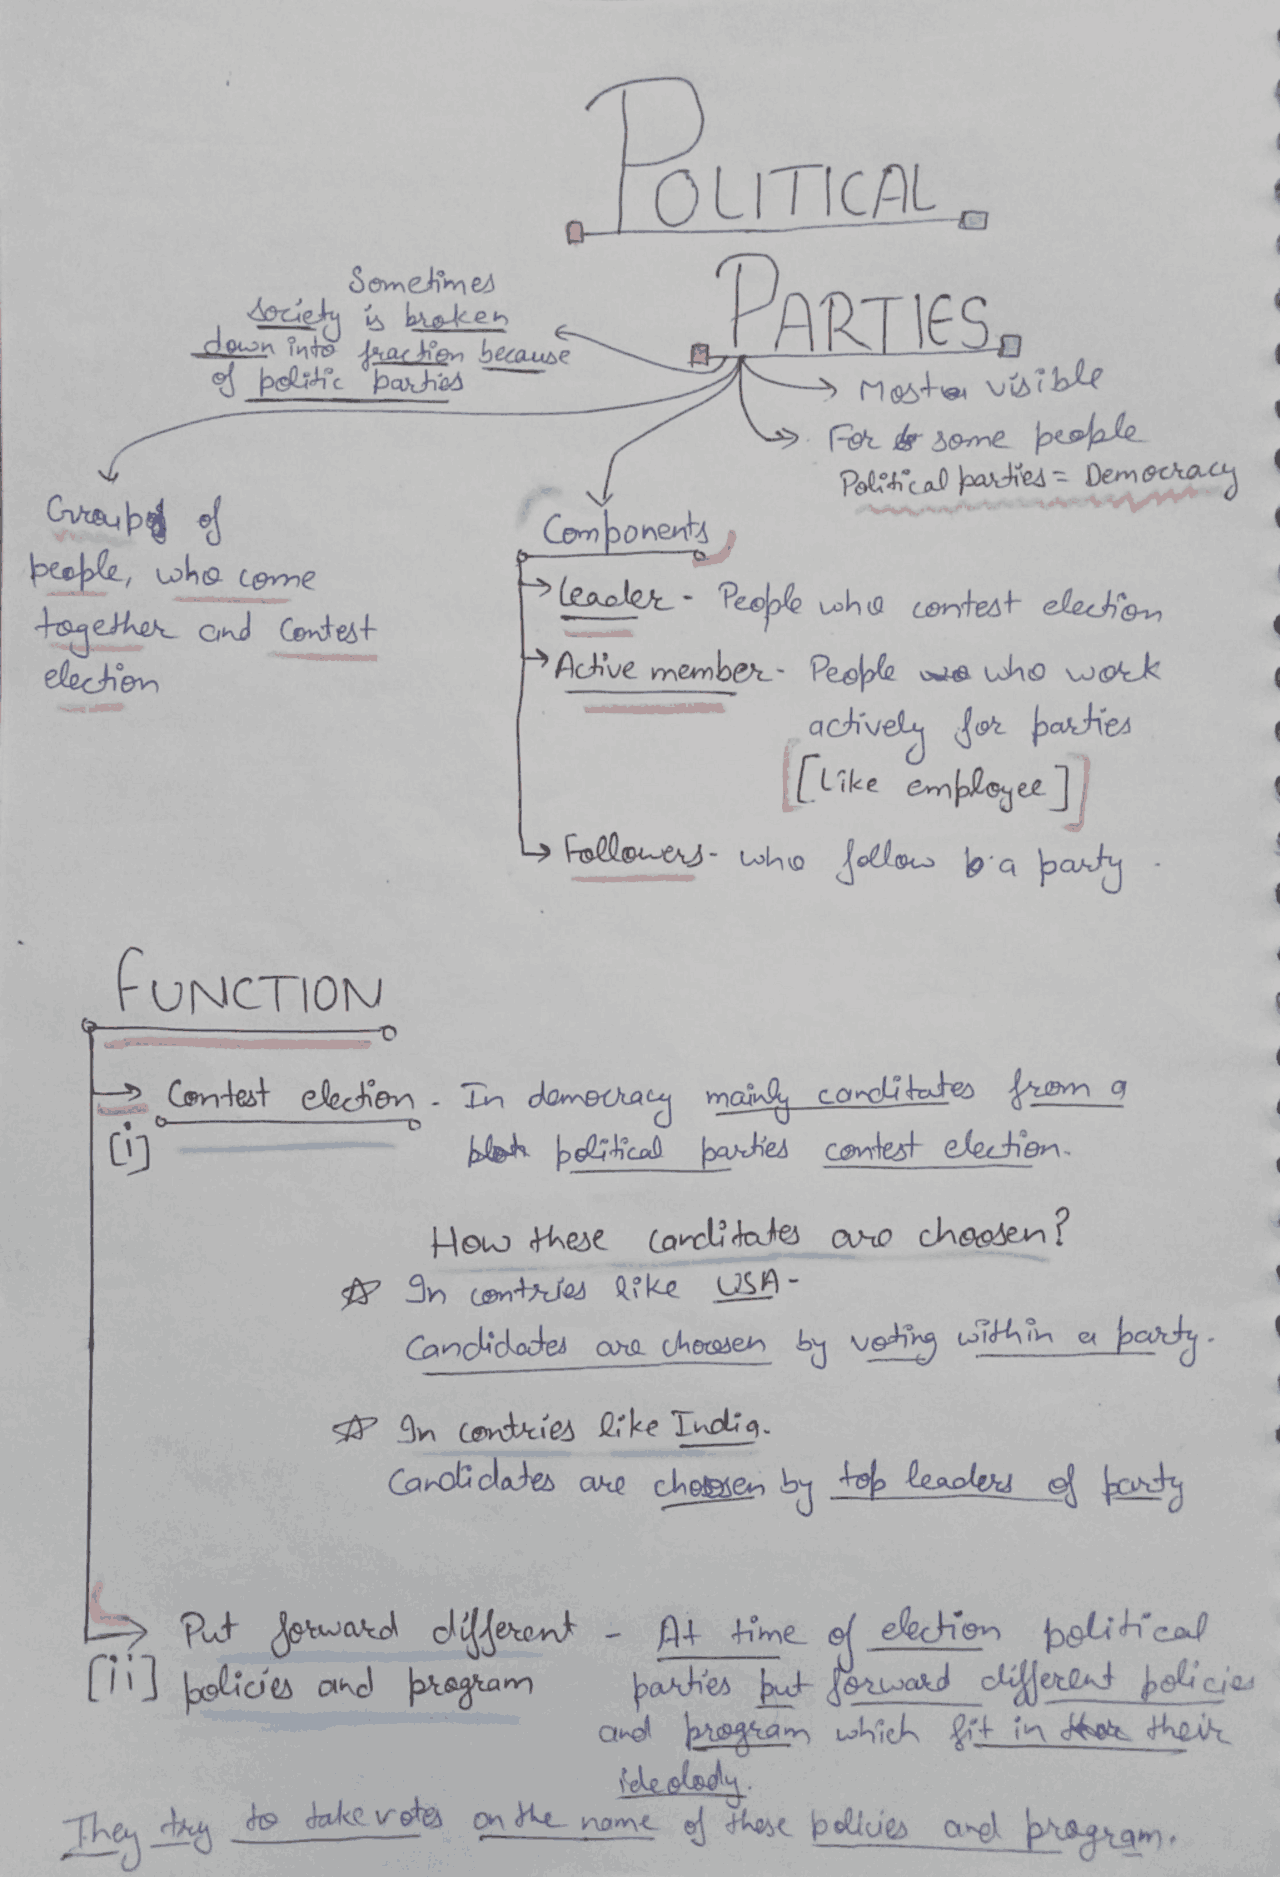 POLITICAL
PARTIES
Sometimes
society is broken
down into fraction because
of politic parties
Most visible
For some people
Political parties = Democracy
Groups of
people, who come
together and contest
election
Components
Leader - People who contest election
Active member - People who work
actively for parties
[Like employee]
Followers - who follow a party
FUNCTION
[i] Contest election - In democracy mainly canditates from a
political parties contest election.
How these canditates are choosen?
☆ In contries like USA -
Candidates are choosen by voting within a party.
☆ In contries like India.
Candidates are choosen by top leaders of party
[ii] Put forward different - At time of election political
policies and program parties put forward different policies
and program which fit in their
ideolody.
They try to take votes on the name of these policies and program.